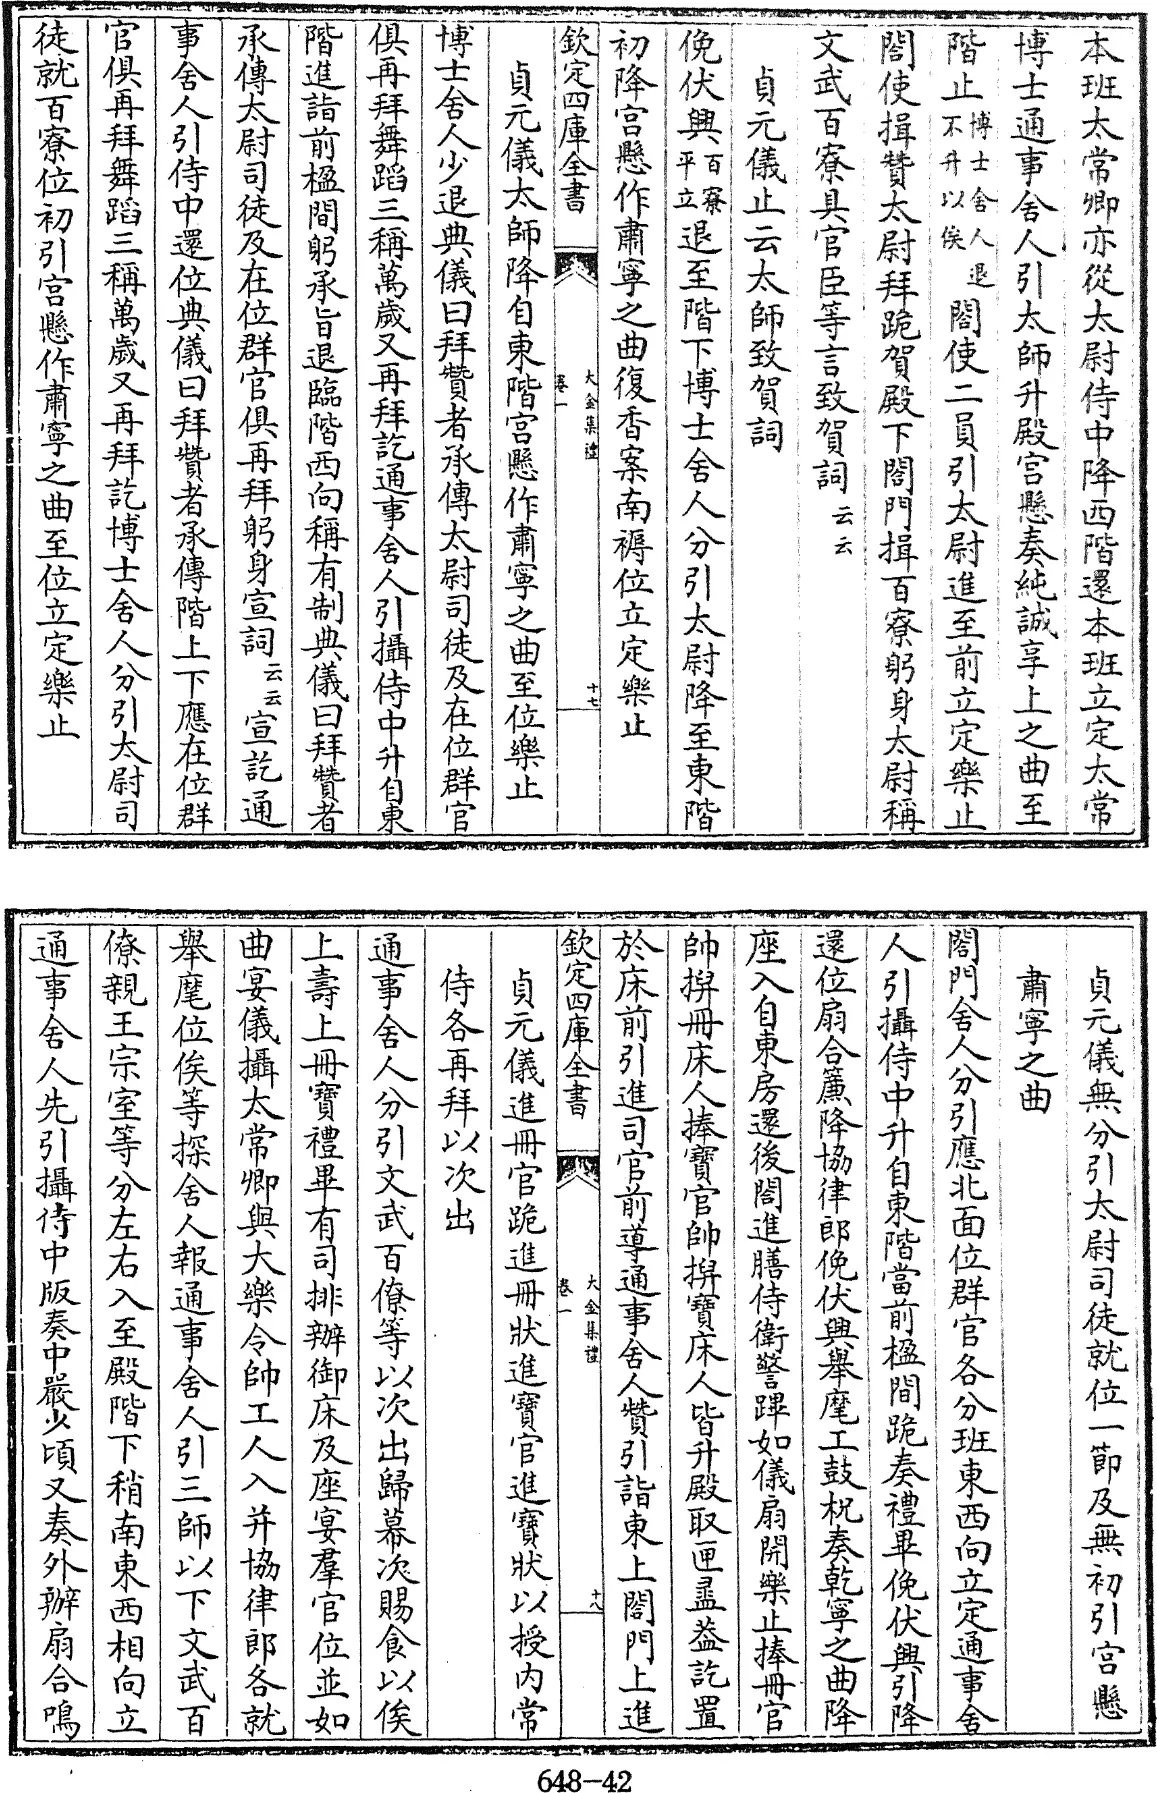 本班太常卿亦從太尉侍中降西階還本班立定太常
博士通事舍人引太師升殿宮懸奏純誠享上之曲至
階止博士舍人退不升以俟閤使二員引太尉進至前立定樂止
閤使揖贊太尉拜跪賀殿下閤門揖百寮躬身太尉稱
文武百寮具官臣等言致賀詞云云
貞元儀止云太師致賀詞
俛伏興百寮平立退至階下博士舍人分引太尉降至東階
初降宮懸作肅寧之曲復香案南褥位立定樂止
欽定四庫全書
大金集禮
卷一
十七
貞元儀太師降自東階宮懸作肅寧之曲至位樂止
博士舍人少退典儀曰拜贊者承傳太尉司徒及在位群官
俱再拜舞蹈三稱萬歲又再拜訖通事舍人引攝侍中升自東
階進詣前楹間躬承旨退臨階西向稱有制典儀曰拜贊者
承傳太尉司徒及在位群官俱再拜躬身宣詞云云宣訖通
事舍人引侍中還位典儀曰拜贊者承傳階上下應在位群
官俱再拜舞蹈三稱萬歲又再拜訖博士舍人分引太尉司
徒就百寮位初引宮懸作肅寧之曲至位立定樂止
貞元儀無分引太尉司徒就位一節及無初引宮懸
肅寧之曲
閤門舍人分引應北面位群官各分班東西向立定通事舍
人引攝侍中升自東階當前楹間跪奏禮畢俛伏興引降
還位扇合簾降協律郎俛伏興舉麾工鼓柷奏乾寧之曲降
座入自東房還後閤進膳侍衛警蹕如儀扇開樂止捧冊官
帥捧冊床人捧寶官帥捧寶床人皆升殿取匣盝蓋訖置
於床前引進司官前導通事舍人贊引詣東上閤門上進
欽定四庫全書
大金集禮
卷一
十八
貞元儀進冊官跪進冊狀進寶官進寶狀以授內常
侍各再拜以次出
通事舍人分引文武百僚等以次出歸幕次賜食以俟
上壽上冊寶禮畢有司排辦御床及座宴羣官位並如
曲宴儀攝太常卿與大樂令帥工人入并協律郎各就
舉麾位俟等探舍人報通事舍人引三師以下文武百
僚親王宗室等分左右入至殿階下稍南東西相向立
通事舍人先引攝侍中版奏中嚴少頃又奏外辦扇合鳴
648-42